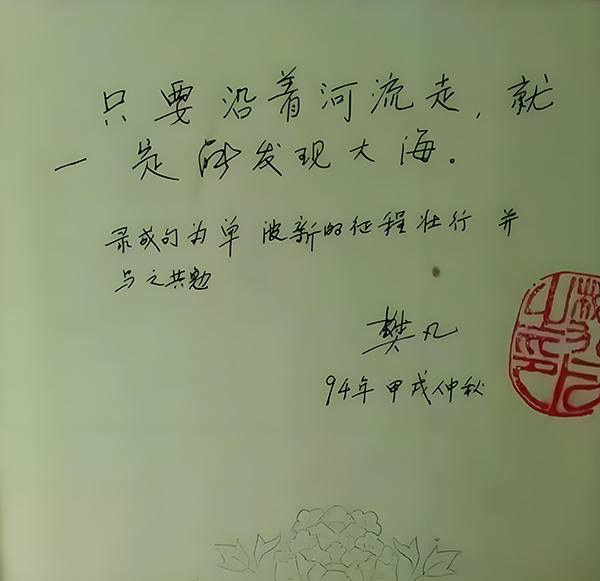 只要沿着河流走，就
一定能发现大海。
录成句为单波新的征程壮行并
与之共勉
樊凡
94年甲戌仲秋